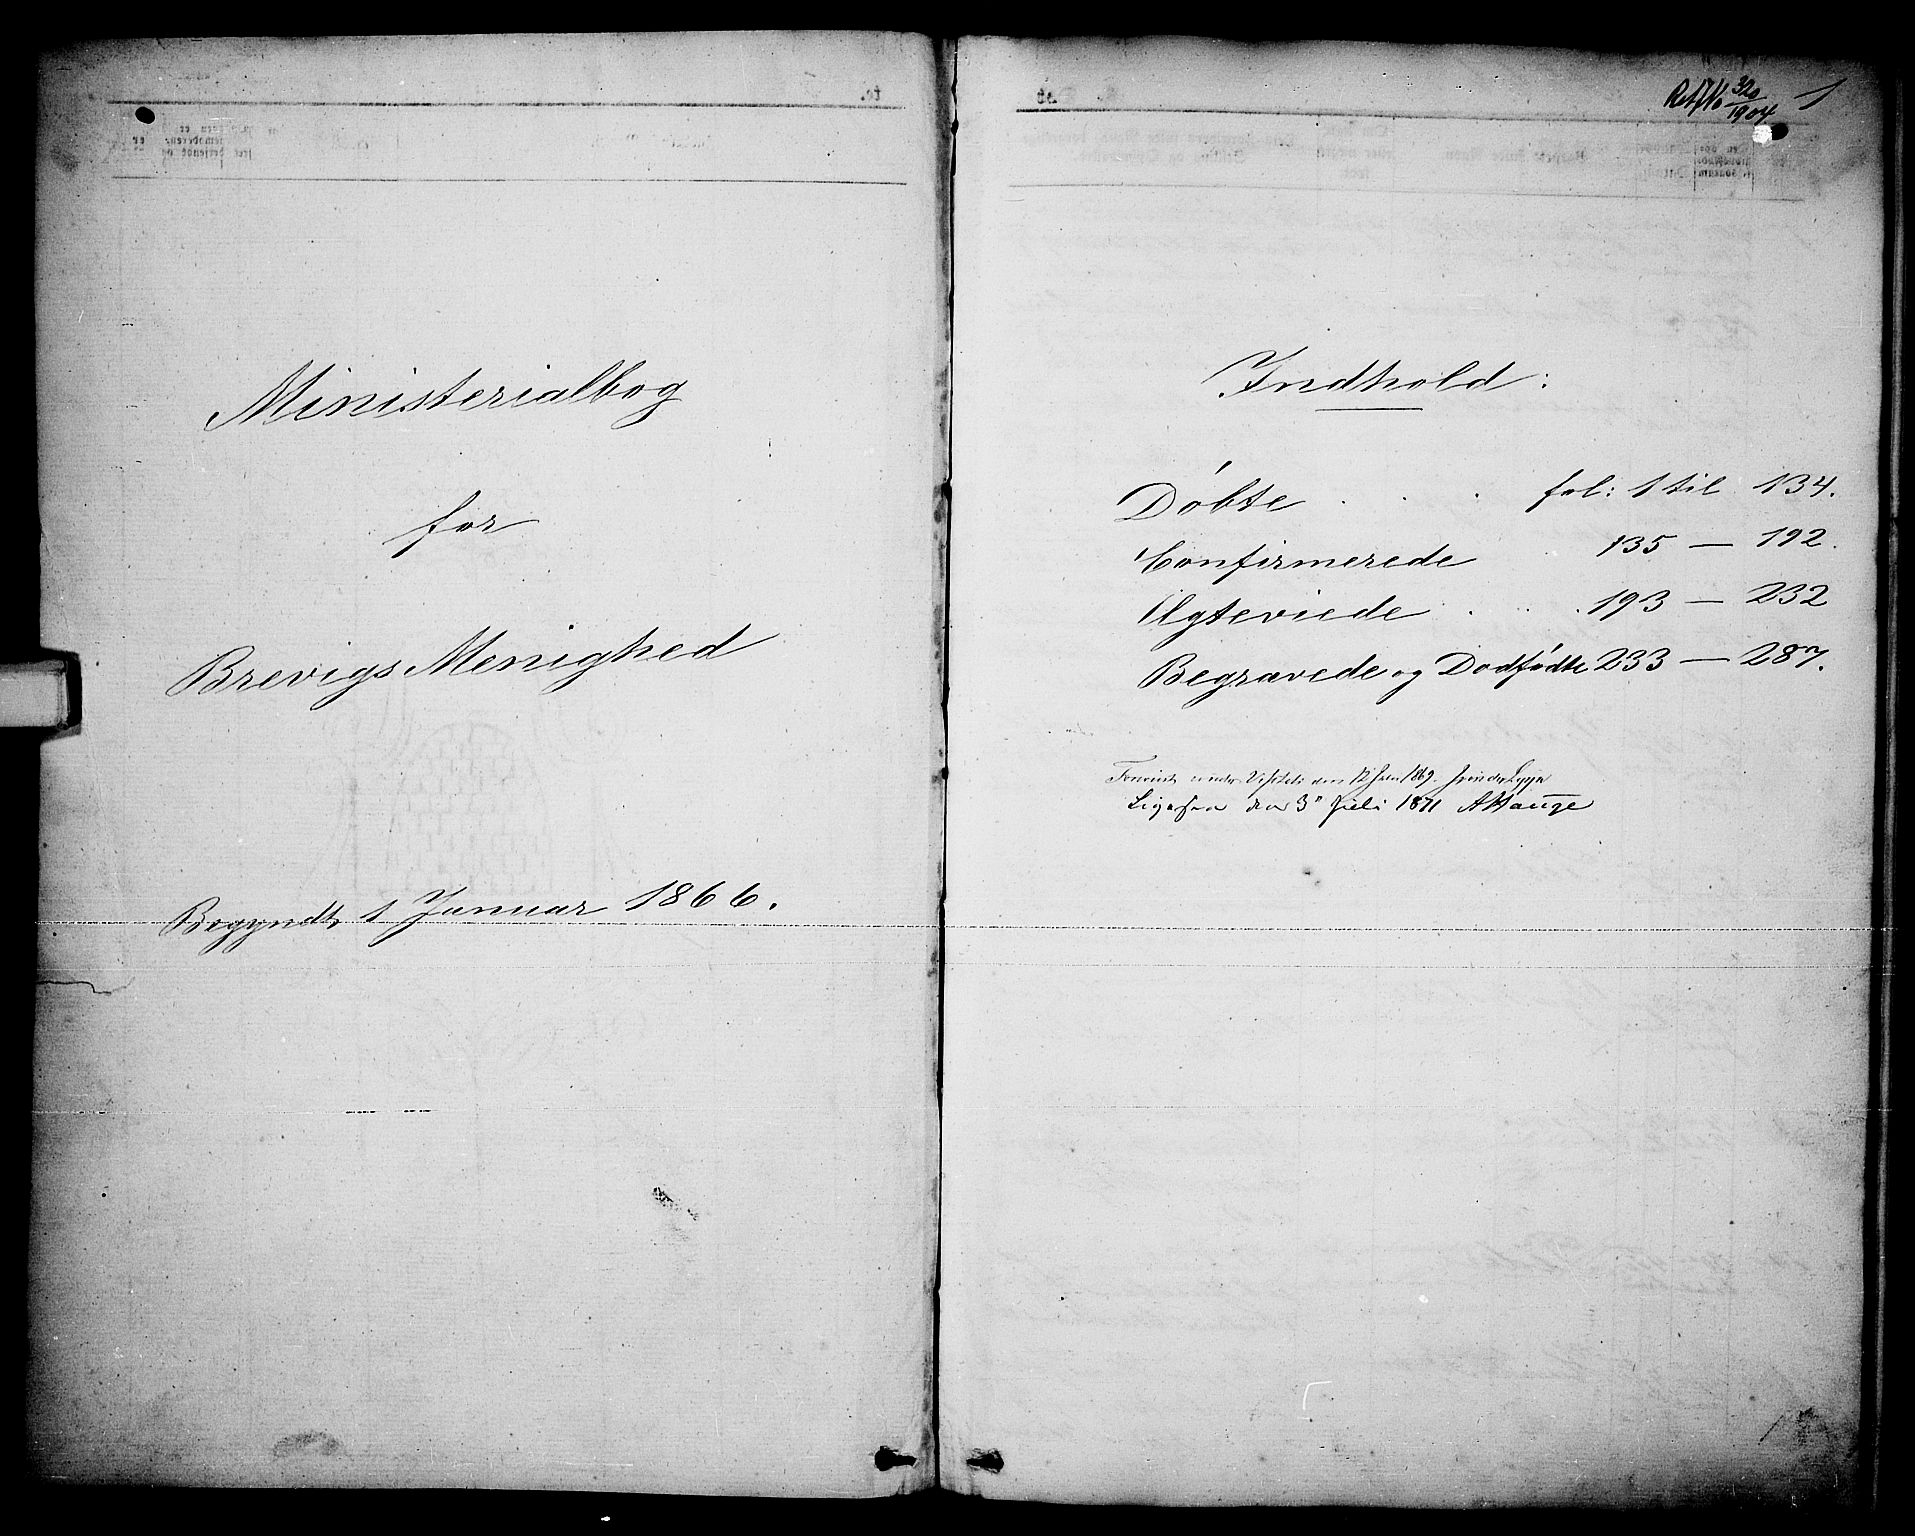 Ministerialbog
for
Brevigs Menighed
Begyndt 1 Januar 1866.
320
1904
1
Indhold:
Døbte . . . fol: 1 til 134.
Confirmerede . 135 — 192.
Ægteviede . . . 193 — 232
Begravede og Dødfødte 233 — 287.
den 12 1869.
den 3" Juli 1871 AHauge